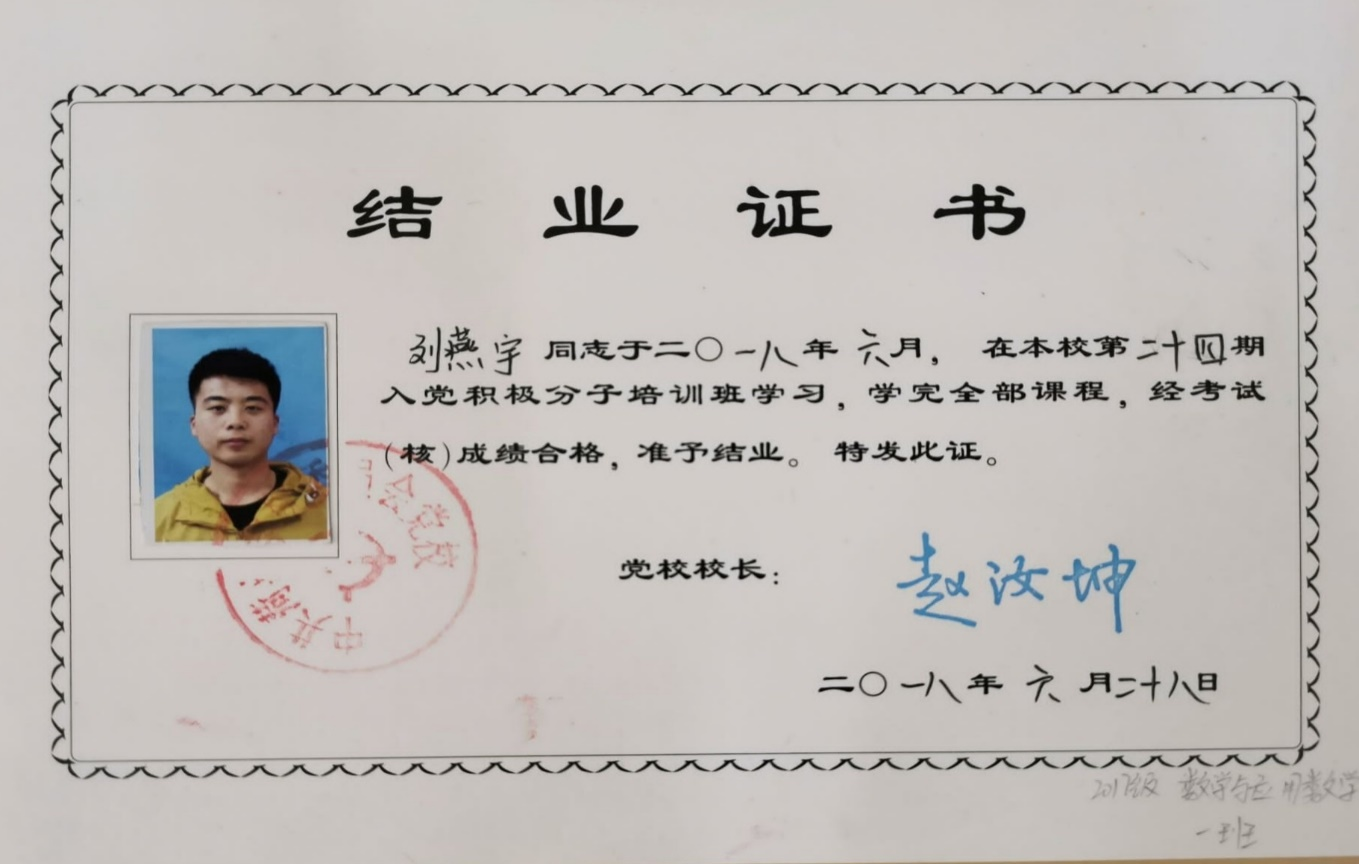 结业证书
刘燕宇 同志于二〇一八年六月，在本校第二十四期
入党积极分子培训班学习，学完全部课程，经考试
（核）成绩合格，准予结业。特发此证。
党校校长：赵汝坤
二〇一八年六月二十八日
中共 党校
2017级 数学与应用数学
一班